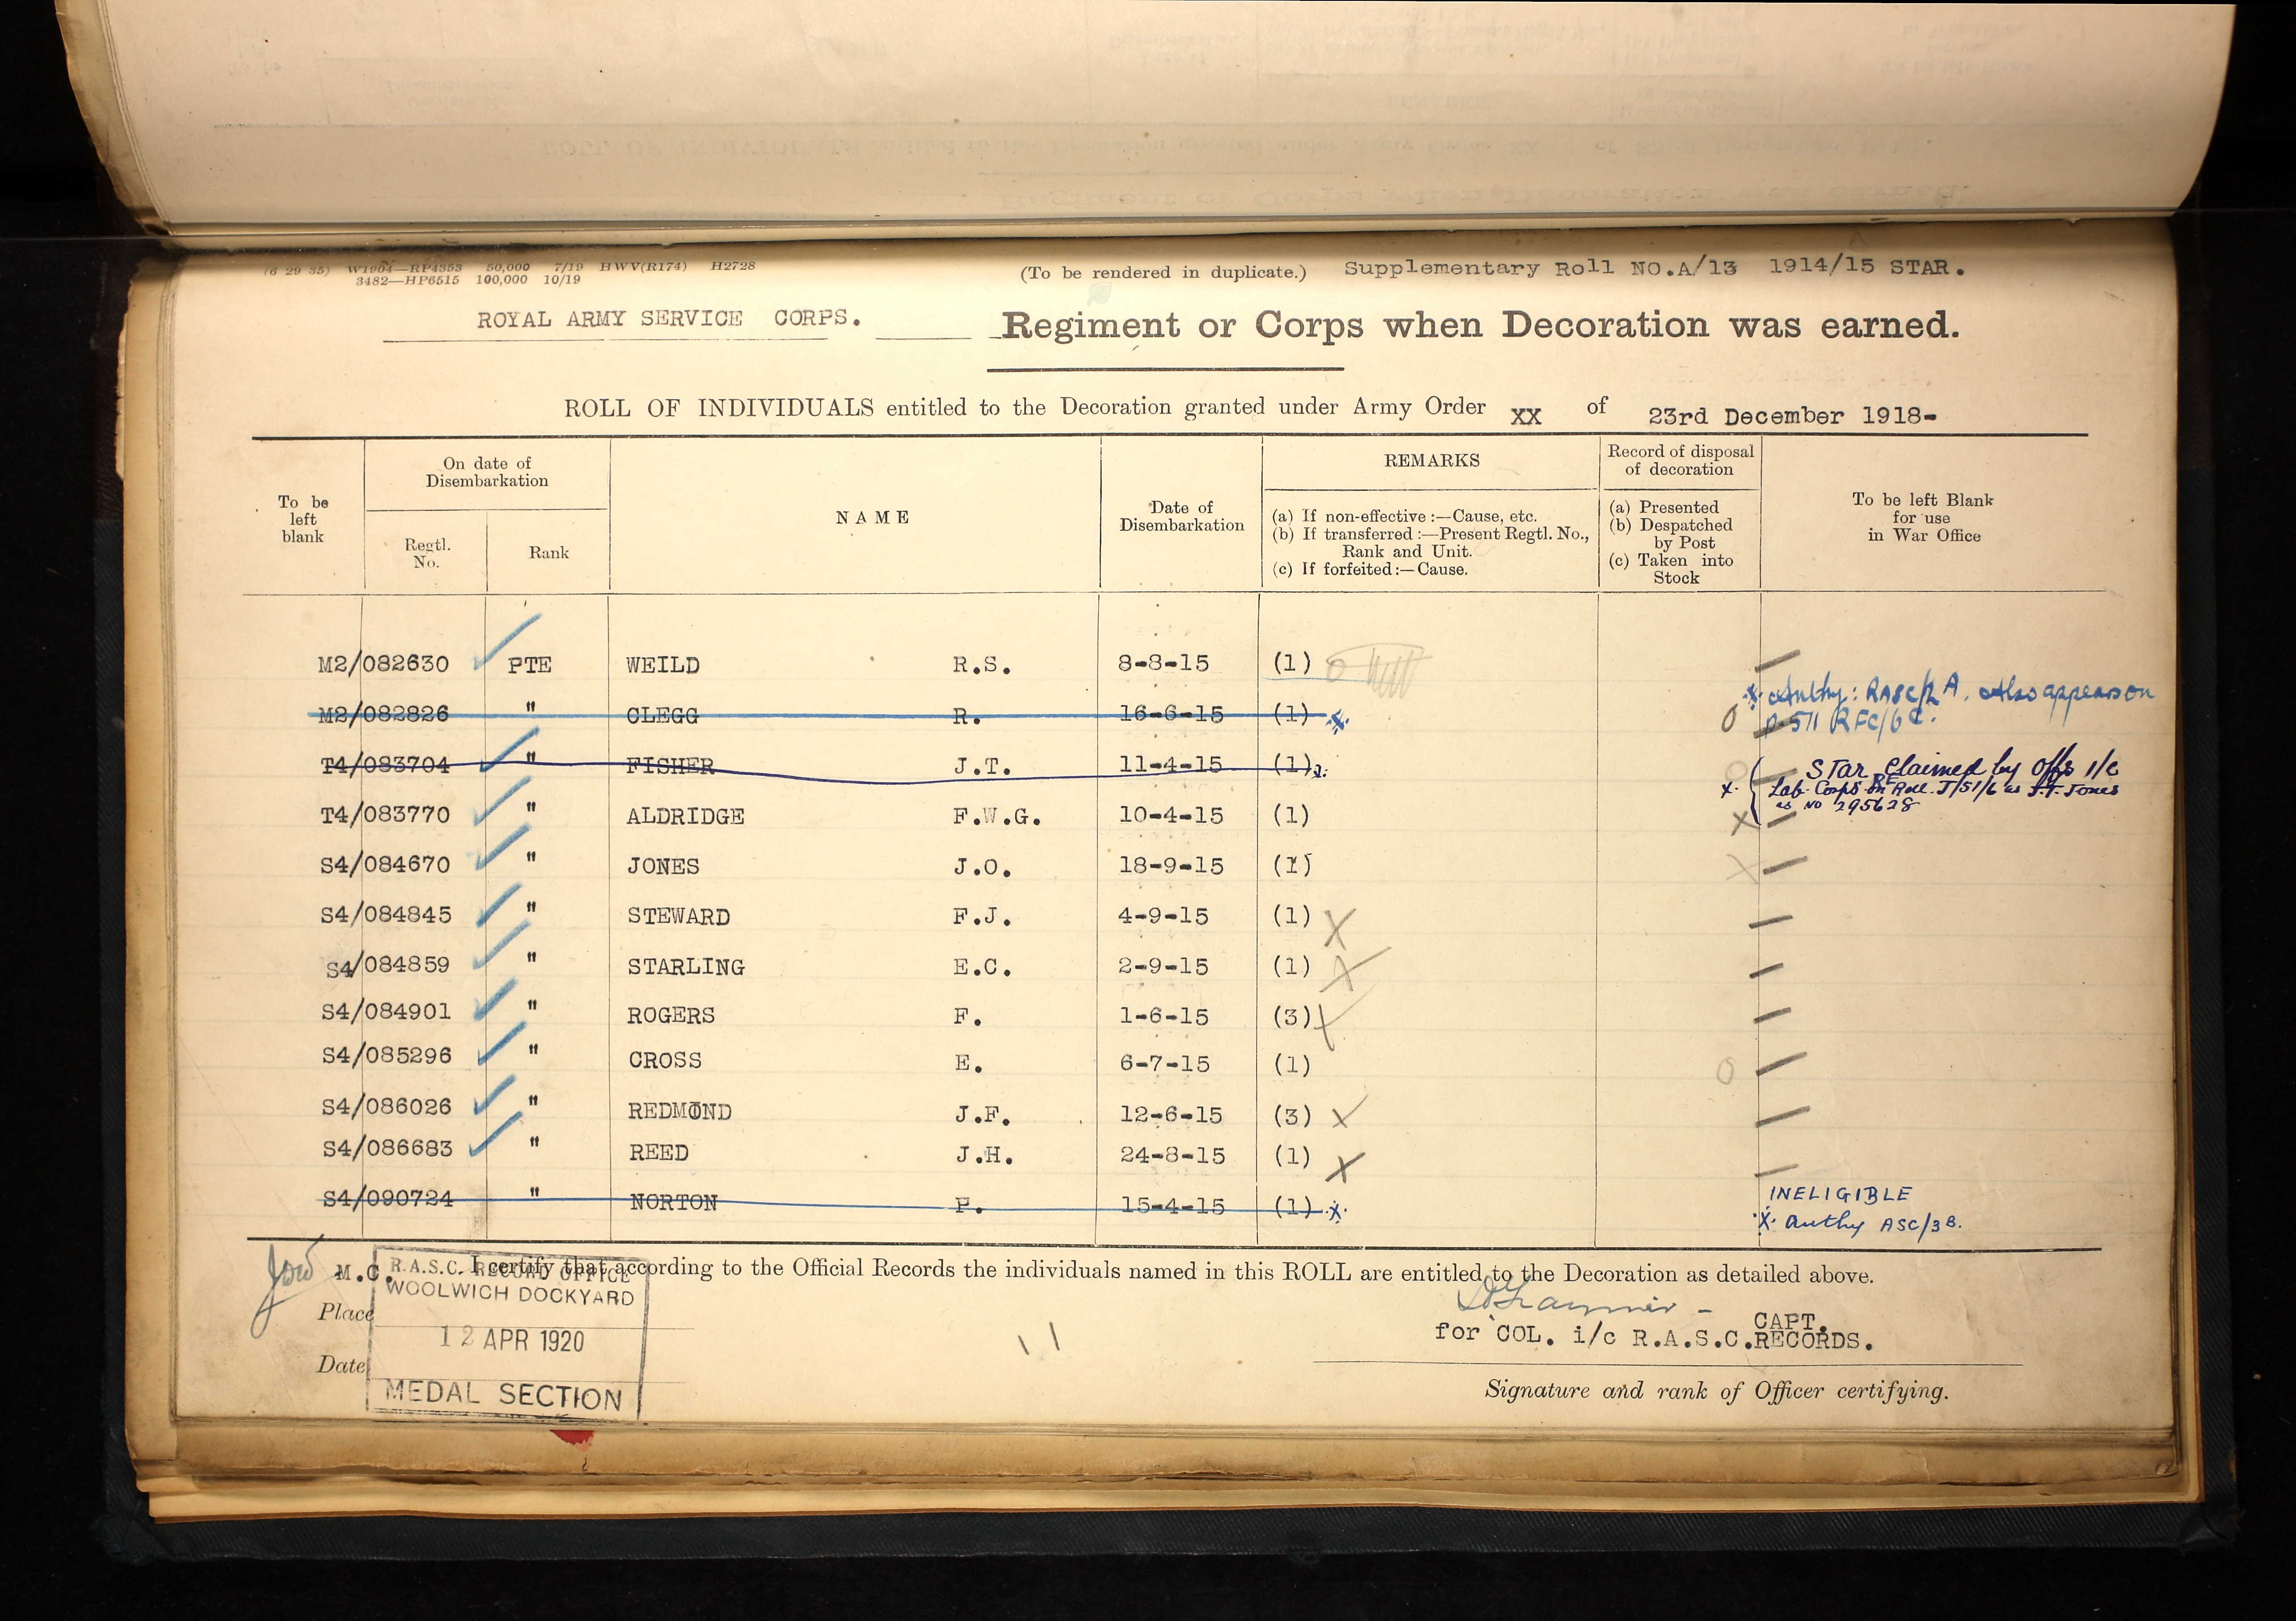 (6 29 35) W1964—RP4353 50,000 7/19 HWV(R174) H2728
3482—HP6515 100,000 10/19
(To be rendered in duplicate.) Supplementary Roll NO.A/13 1914/15 STAR.
ROYAL ARMY SERVICE CORPS. Regiment or Corps when Decoration was earned.
ROLL OF INDIVIDUALS entitled to the Decoration granted under Army Order XX of 23rd December 1918-
To be left blank
On date of Disembarkation
Regtl. No.
Rank
NAME
Date of Disembarkation
REMARKS
(a) If non-effective :—Cause, etc.
(b) If transferred :—Present Regtl. No., Rank and Unit.
(c) If forfeited :—Cause.
Record of disposal of decoration
(a) Presented
(b) Despatched by Post
(c) Taken into Stock
To be left Blank for use in War Office
M2/082630 PTE WEILD R.S. 8-8-15 (1)
M2/082826 " CLEGG R. 16-6-15 (1) x
x Authy: RASC/2 A. Also appears on
p.511 RFC/6C.
T4/083704 " FISHER J.T. 11-4-15 (1)
x. Star claimed by Offr i/c
Lab Corps RE on Roll J/51/6 as J.T. Jones
as No 295628
T4/083770 " ALDRIDGE F.W.G. 10-4-15 (1)
S4/084670 " JONES J.O. 18-9-15 (1)
S4/084845 " STEWARD F.J. 4-9-15 (1) X
S4/084859 " STARLING E.C. 2-9-15 (1) X
S4/084901 " ROGERS F. 1-6-15 (3) X
S4/085296 " CROSS E. 6-7-15 (1)
S4/086026 " REDMOND J.F. 12-6-15 (3) X
S4/086683 " REED J.H. 24-8-15 (1) X
S4/090724 " NORTON P. 15-4-15 (1) x
INELIGIBLE
x Authy ASC/3B.
M.C. I certify that according to the Official Records the individuals named in this ROLL are entitled to the Decoration as detailed above.
R.A.S.C. RECORD OFFICE
WOOLWICH DOCKYARD
Place
12 APR 1920
Date
MEDAL SECTION
CAPT.
for COL. i/c R.A.S.C.RECORDS.
Signature and rank of Officer certifying.